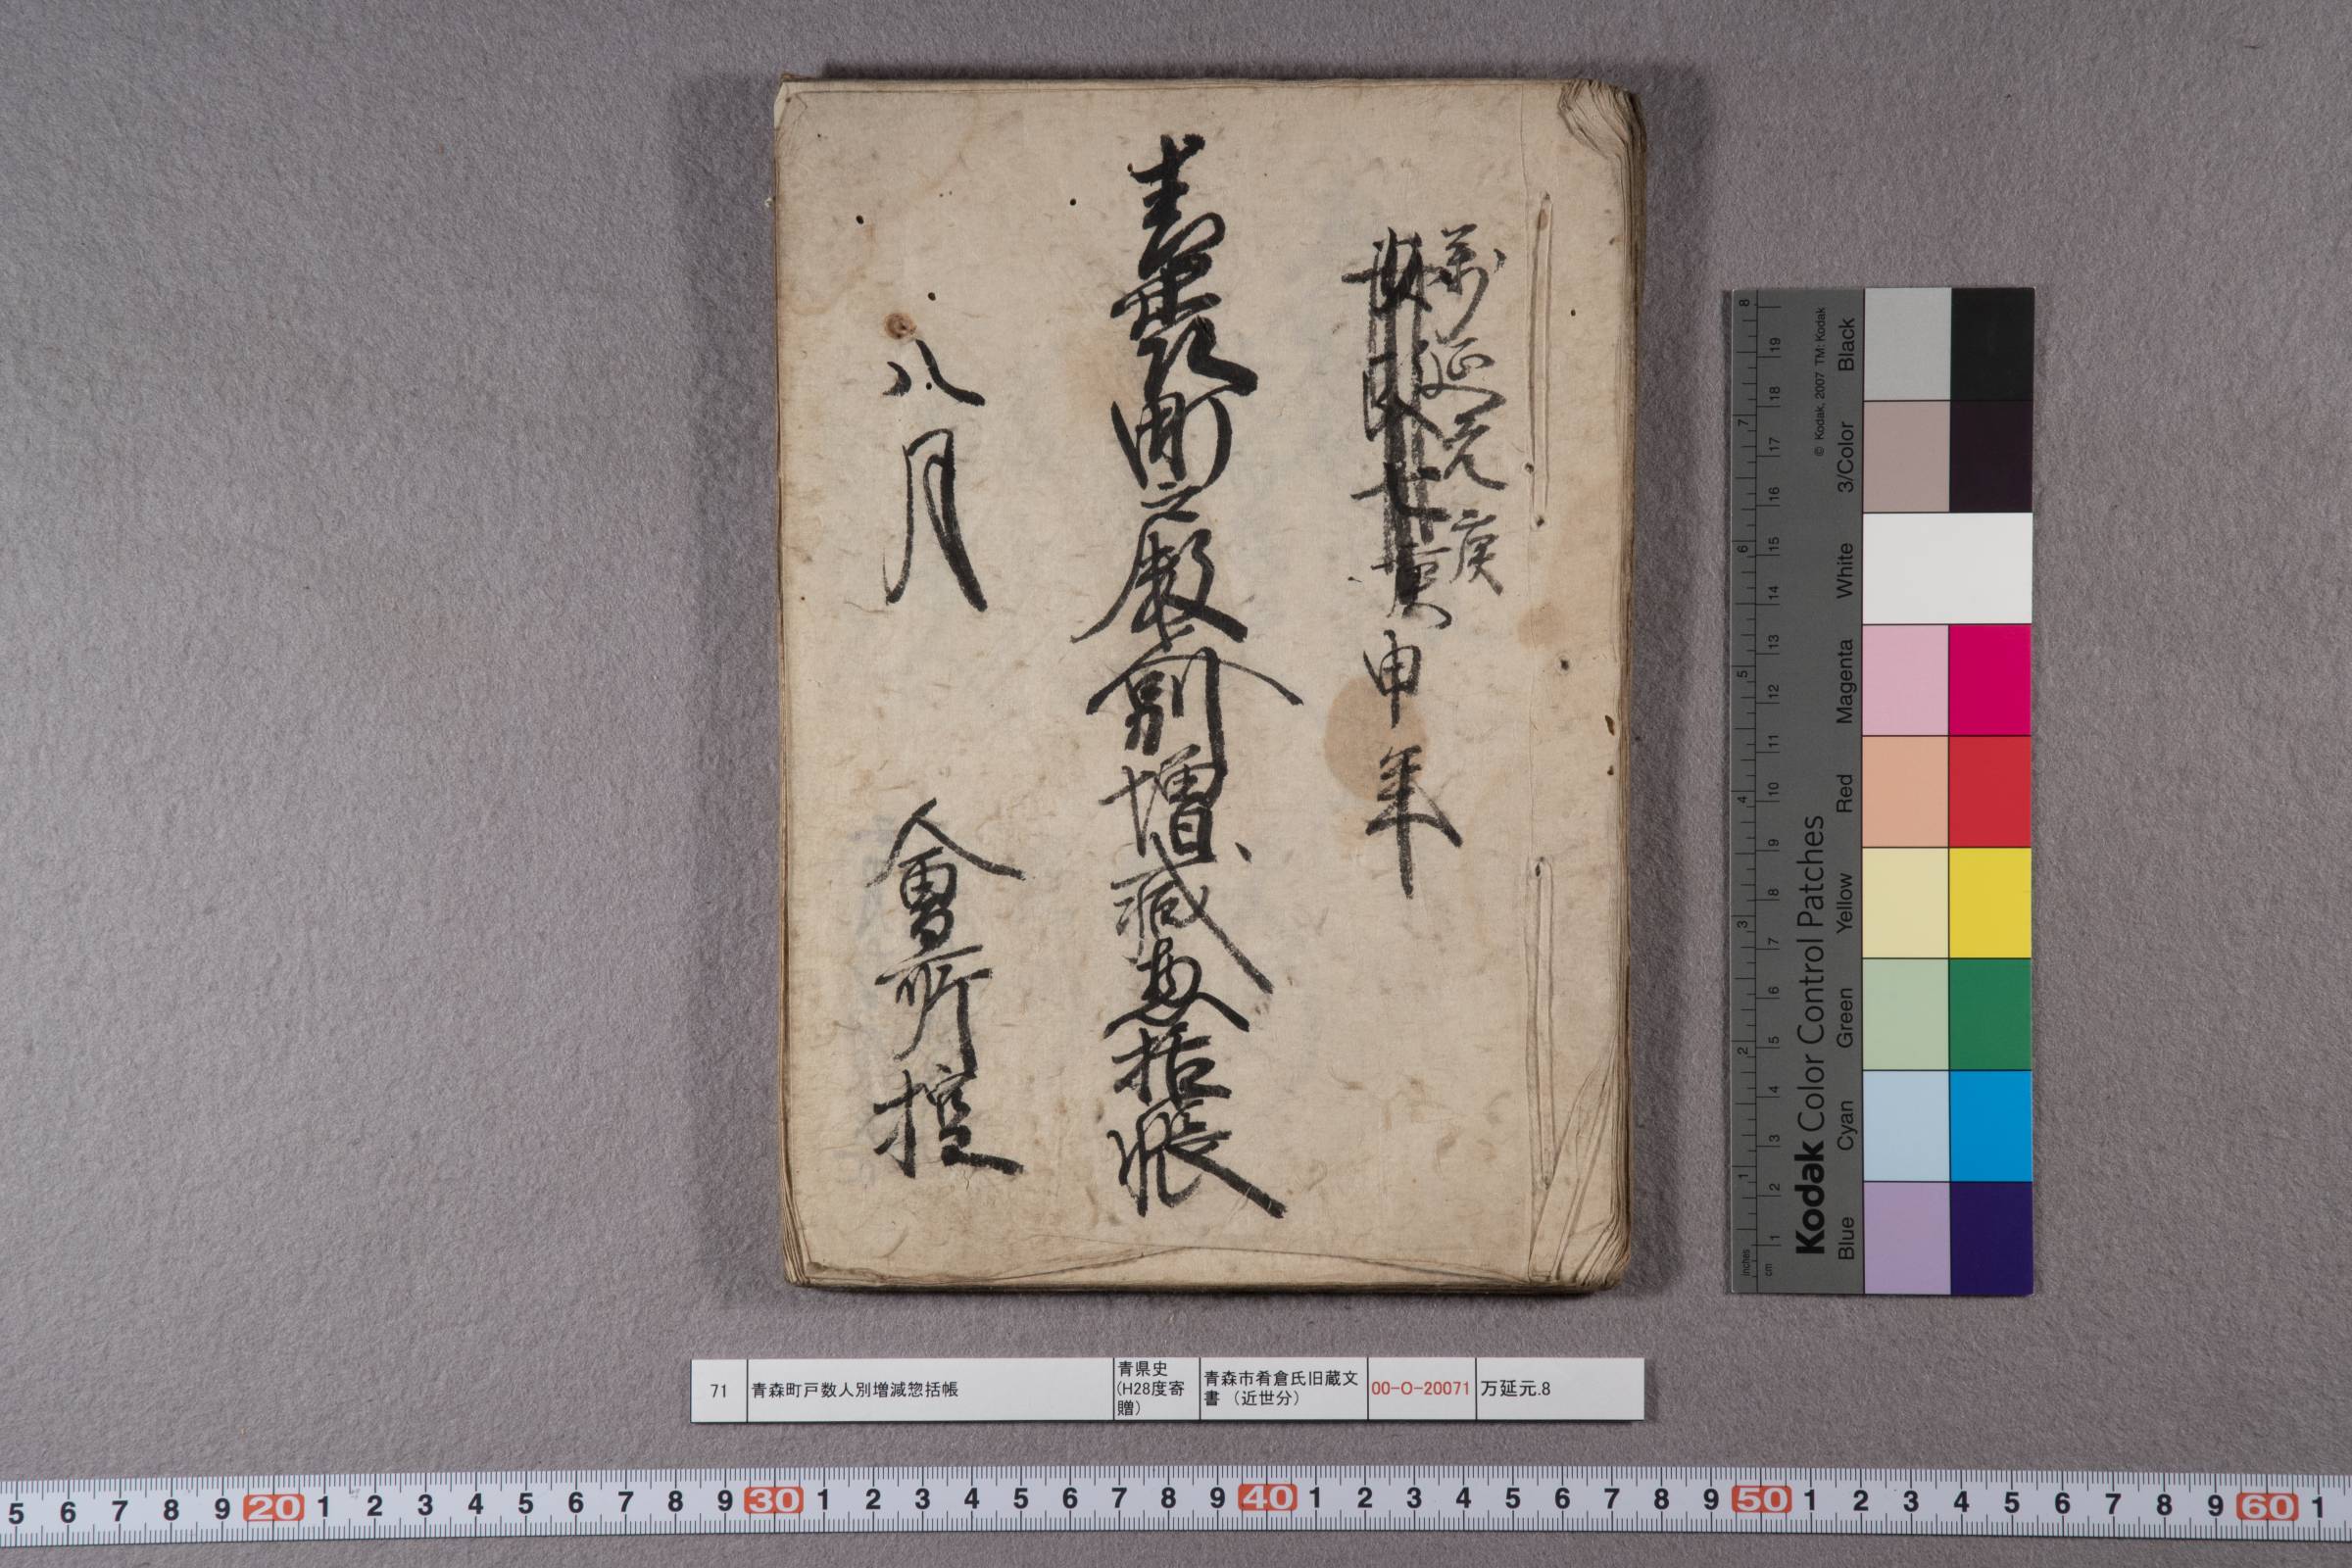 萬延元庚
申年
青森町戸数人別増減惣括帳
八月
會所控
71
青森町戸数人別増減惣括帳
青県史
(H28度寄
贈)
青森市肴倉氏旧蔵文
書（近世分）
00-O-20071
万延元.8
Kodak Color Control Patches
© Kodak, 2007 TM: Kodak
Blue Cyan Green Yellow Red Magenta White 3/Color Black
inches 1 2 3 4 5 6 7 8
cm 1 2 3 4 5 6 7 8 9 10 11 12 13 14 15 16 17 18 19
5 6 7 8 9 20 1 2 3 4 5 6 7 8 9 30 1 2 3 4 5 6 7 8 9 40 1 2 3 4 5 6 7 8 9 50 1 2 3 4 5 6 7 8 9 60 1